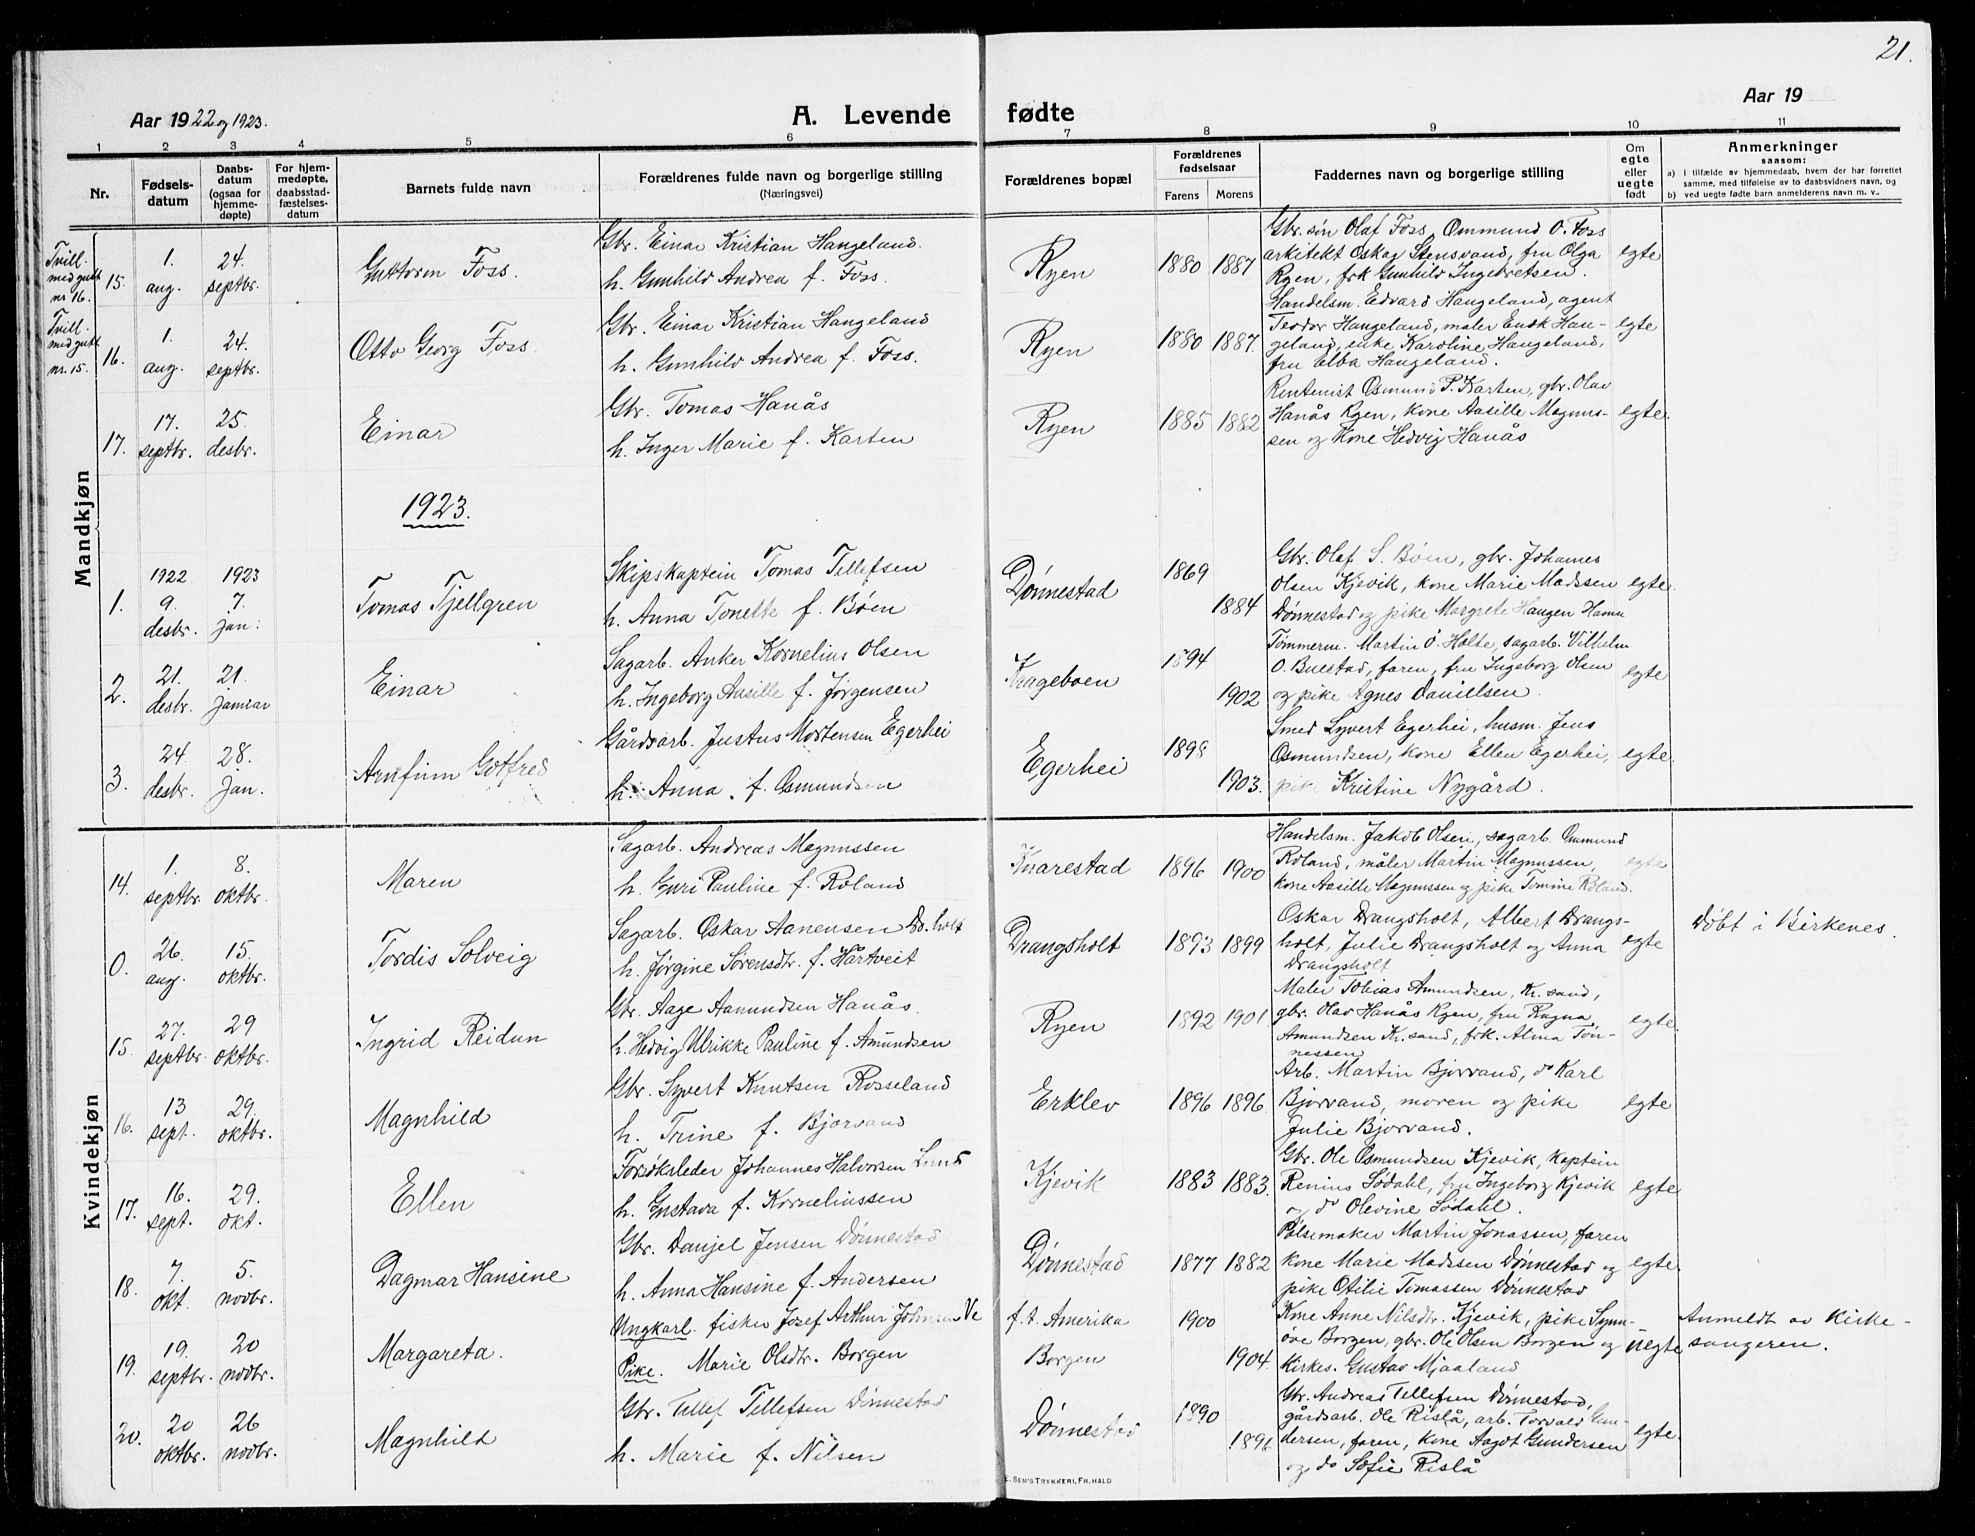 21.
Aar 1922 og 1923.
A. Levende fødte
Aar 19
1 2 3 4 5 6 7 8 9 10 11
Nr.
Fødsels-
datum
Daabs-
datum
(ogsaa for
hjemme-
døpte)
For hjem-
medøpte,
daabsstad-
fæstelses-
datum
Barnets fulde navn
Forældrenes fulde navn og borgerlige stilling
(Næringsvei)
Forældrenes bopæl
Forældrenes
fødselsaar
Farens Morens
Faddernes navn og borgerlige stilling
Om
egte
eller
uegte
født
Anmerkninger
saasom:
a) i tilfælde av hjemmedaab, hvem der har forrettet
samme, med tilføielse av to daabsvidners navn, og
b) ved uegte fødte barn anmelderens navn m. v..
Mandkjøn
Tvill.
med gutt
nr. 16.
15. 1. aug. 24. septbr.
Guttorm Foss.
Gbr. Einar Kristian Hangeland.
h. Gunhild Andrea f. Foss.
Ryen 1880 1887
Gbr. søn Olaf Foss, Ommund O. Foss
arkitekt Oskar Stensvand, fru Olga
Ryen, frk Gunhild Ingebretsen.
egte
Tvill.
med gutt
nr. 15.
16. 1. aug. 24. septbr.
Otto Georg Foss.
Gbr. Einar Kristian Hangeland
h. Gunhild Andrea f. Foss.
Ryen 1880 1887.
Handelsm. Edvard Hangeland, agent
Teodor Hangeland, maler Enok Han-
geland, enke Karoline Hangeland,
fru Elba Hangeland.
egte
17. 17. septbr. 25. desbr.
Einar
Gbr. Tomas Hanås
h. Inger Marie f. Karten
Ryen 1885 1882
Rentenist Osmund P. Karten, gbr. Olav
Hanås Ryen, kone Aasille Magnus-
sen og kone Hedvig Hanås
egte.
1923.
1. 1922 9. desbr. 1923 7. jan.
Tomas Tjellgren
Skipskaptein Tomas Tellefsen
h. Anna Tonette f. Bøen
Dønnestad 1869 1884
Gbr. Olaf S. Bøen, gbr. Johannes
Olsen Kjevik, kone Marie Madssen
Dønnestad og pike Margrete Haugen Hamre
egte.
2. 21. desbr. 21. januar
Einar
Sagarb. Anker Kornelius Olsen
h. Ingeborg Aasille f. Jørgensen
Krageboen 1894 1902
Tømmerm. Martin O. Holte, sagarb. Vilhelm
O. Buestad, faren, fru Ingeborg Olsen
og pike Agnes Danielsen.
egte
3. 24 desbr. 28. jan.
Arnfinn Gotfred
Gårdsarb. Justus Mortensen Egerhei
h. Anna. f. Osmundsen
Egerhei 1898 1903.
Smed Syvert Egerhei, husm. Jens
Osmundsen, kone Ellen Egerhei,
pike Kristine Nygård.
egte.
Kvindekjøn
14. 1. septbr. 8. oktbr.
Maren
Sagarb. Andreas Magnussen
h. Guri Pauline f. Røland
Knarestad 1896 1900
Handelsm. Jakob Olsen, sagarb. Ommund
Røland, måler Martin Magnussen,
kone Aasille Magnussen og pike Tomine Røland.
egte
0. 26. aug. 15. oktbr.
Tordis Solveig
Sagarb. Oskar Aanensen Dr. holt
h. Jørgine Sørensdtr. f. Hårtveit
Drangsholt 1893 1899
Oskar Drangsholt, Albert Drangs-
holt, Julie Drangsholt og Anna
Drangsholt
egte
Døbt i Birkenes.
15. 27. septbr. 29 oktbr.
Ingrid Reidun
Gbr. Aage Aamundsen Hanås.
h. Hedvig Ulrikke Pauline f. Amundsen
Ryen 1892 1901
Maler Tobias Amundsen, Kr. sand,
gbr. Olav Hanås Ryen, fru Ragna
Amundsen Kr. sand, frk. Alma Tøn-
nessen
egte.
16. 13 sept. 29. oktbr.
Magnhild
Gbr. Syvert Knutsen Rosseland
h. Trine f. Bjorvand
Erklev 1896 1896.
Arb. Martin Bjorvand, do Karl
Bjorvand, moren og pike
Julie Bjorvand.
egte
17. 16. sept. 29. okt.
Ellen
Forsøksleder Johannes Halvorsen Lund
h. Gustava f. Korneliussen
Kjevik 1883 1883.
Gbr. Ole Osmundsen Kjevik, kaptein
Renius Sødahl, fru Ingeborg Kjevik
og do Olevine Sødahl.
egte
18. 7. okt. 5. novbr.
Dagmar Hansine
Gbr. Danjel Jensen Dønnestad
h. Anna Hansine f. Andersen
Dønnestad 1877 1882
Pølsemaker Martin Jonassen, faren
kone Marie Madssen Dønnestad og
pike Otilie Tomassen Dønnestad
egte.
19. 19. septbr. 20 novbr.
Margareta.
Ungkarl. fisker Josef Arthur Johnsen Ve
Pike. Marie Olsdtr. Borgen
f. t. Amerika 1900
Borgen 1904.
Kone Anne Nilsdtr. Kjevik, pike Synn-
øve Borgen, gbr. Ole Olsen Borgen og
kirkes. Gustav Mjaaland
uegte
Anmeldt av kirke-
sangeren.
20. 20 oktbr. 26 novbr.
Magnhild
Gbr. Tellef Tellefsen Dønnestad
h. Marie f. Nilsen
Dønnestad 1890 1896
Gbr. Andreas Tellefsen Dønnestad,
gårdsarb. Ole Rislå, arb. Torvald Gun-
dersen, faren, kone Aagot Gundersen
og do Sofie Rislå
egte.
E. SEM'S TRYKKERI, FR.HALD